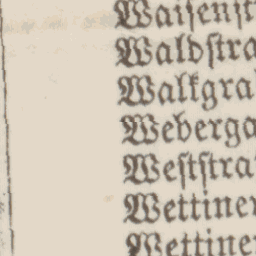 Waiſenſt
Waldſtra
Walkgra
Weberga
Weſtſtra
Wettiner
Wettiner